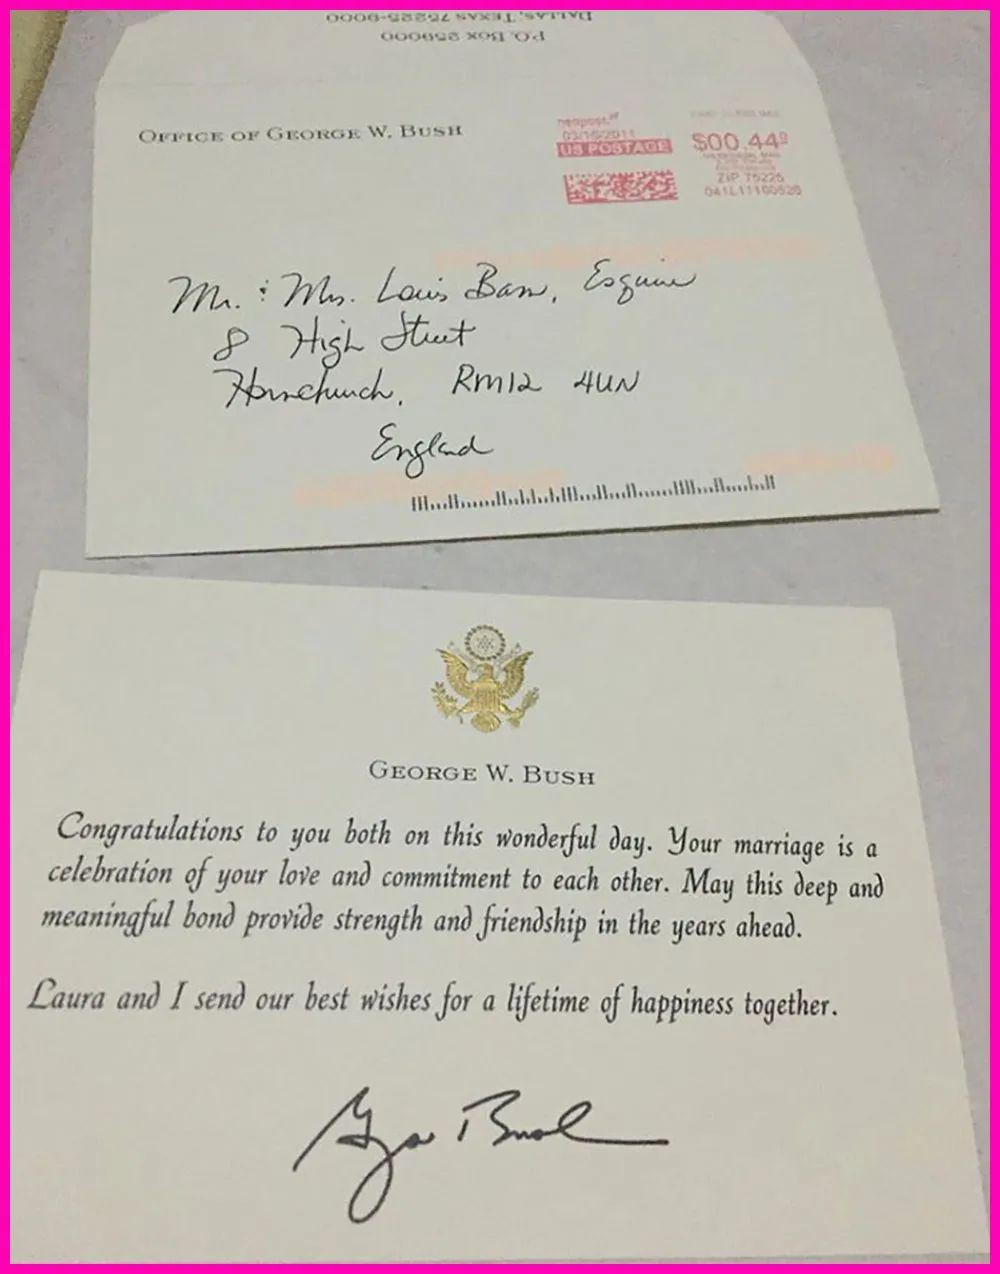 P.O. Box 259000
Dallas, Texas 75225-9000
Office of George W. Bush
neopost
03/16/2011
US POSTAGE
$00.44
ZIP 75225
Mr. & Mrs. Louis Esquire
8 High Street
Hornchurch, RM12 4UN
England
George W. Bush
Congratulations to you both on this wonderful day. Your marriage is a
celebration of your love and commitment to each other. May this deep and
meaningful bond provide strength and friendship in the years ahead.
Laura and I send our best wishes for a lifetime of happiness together.